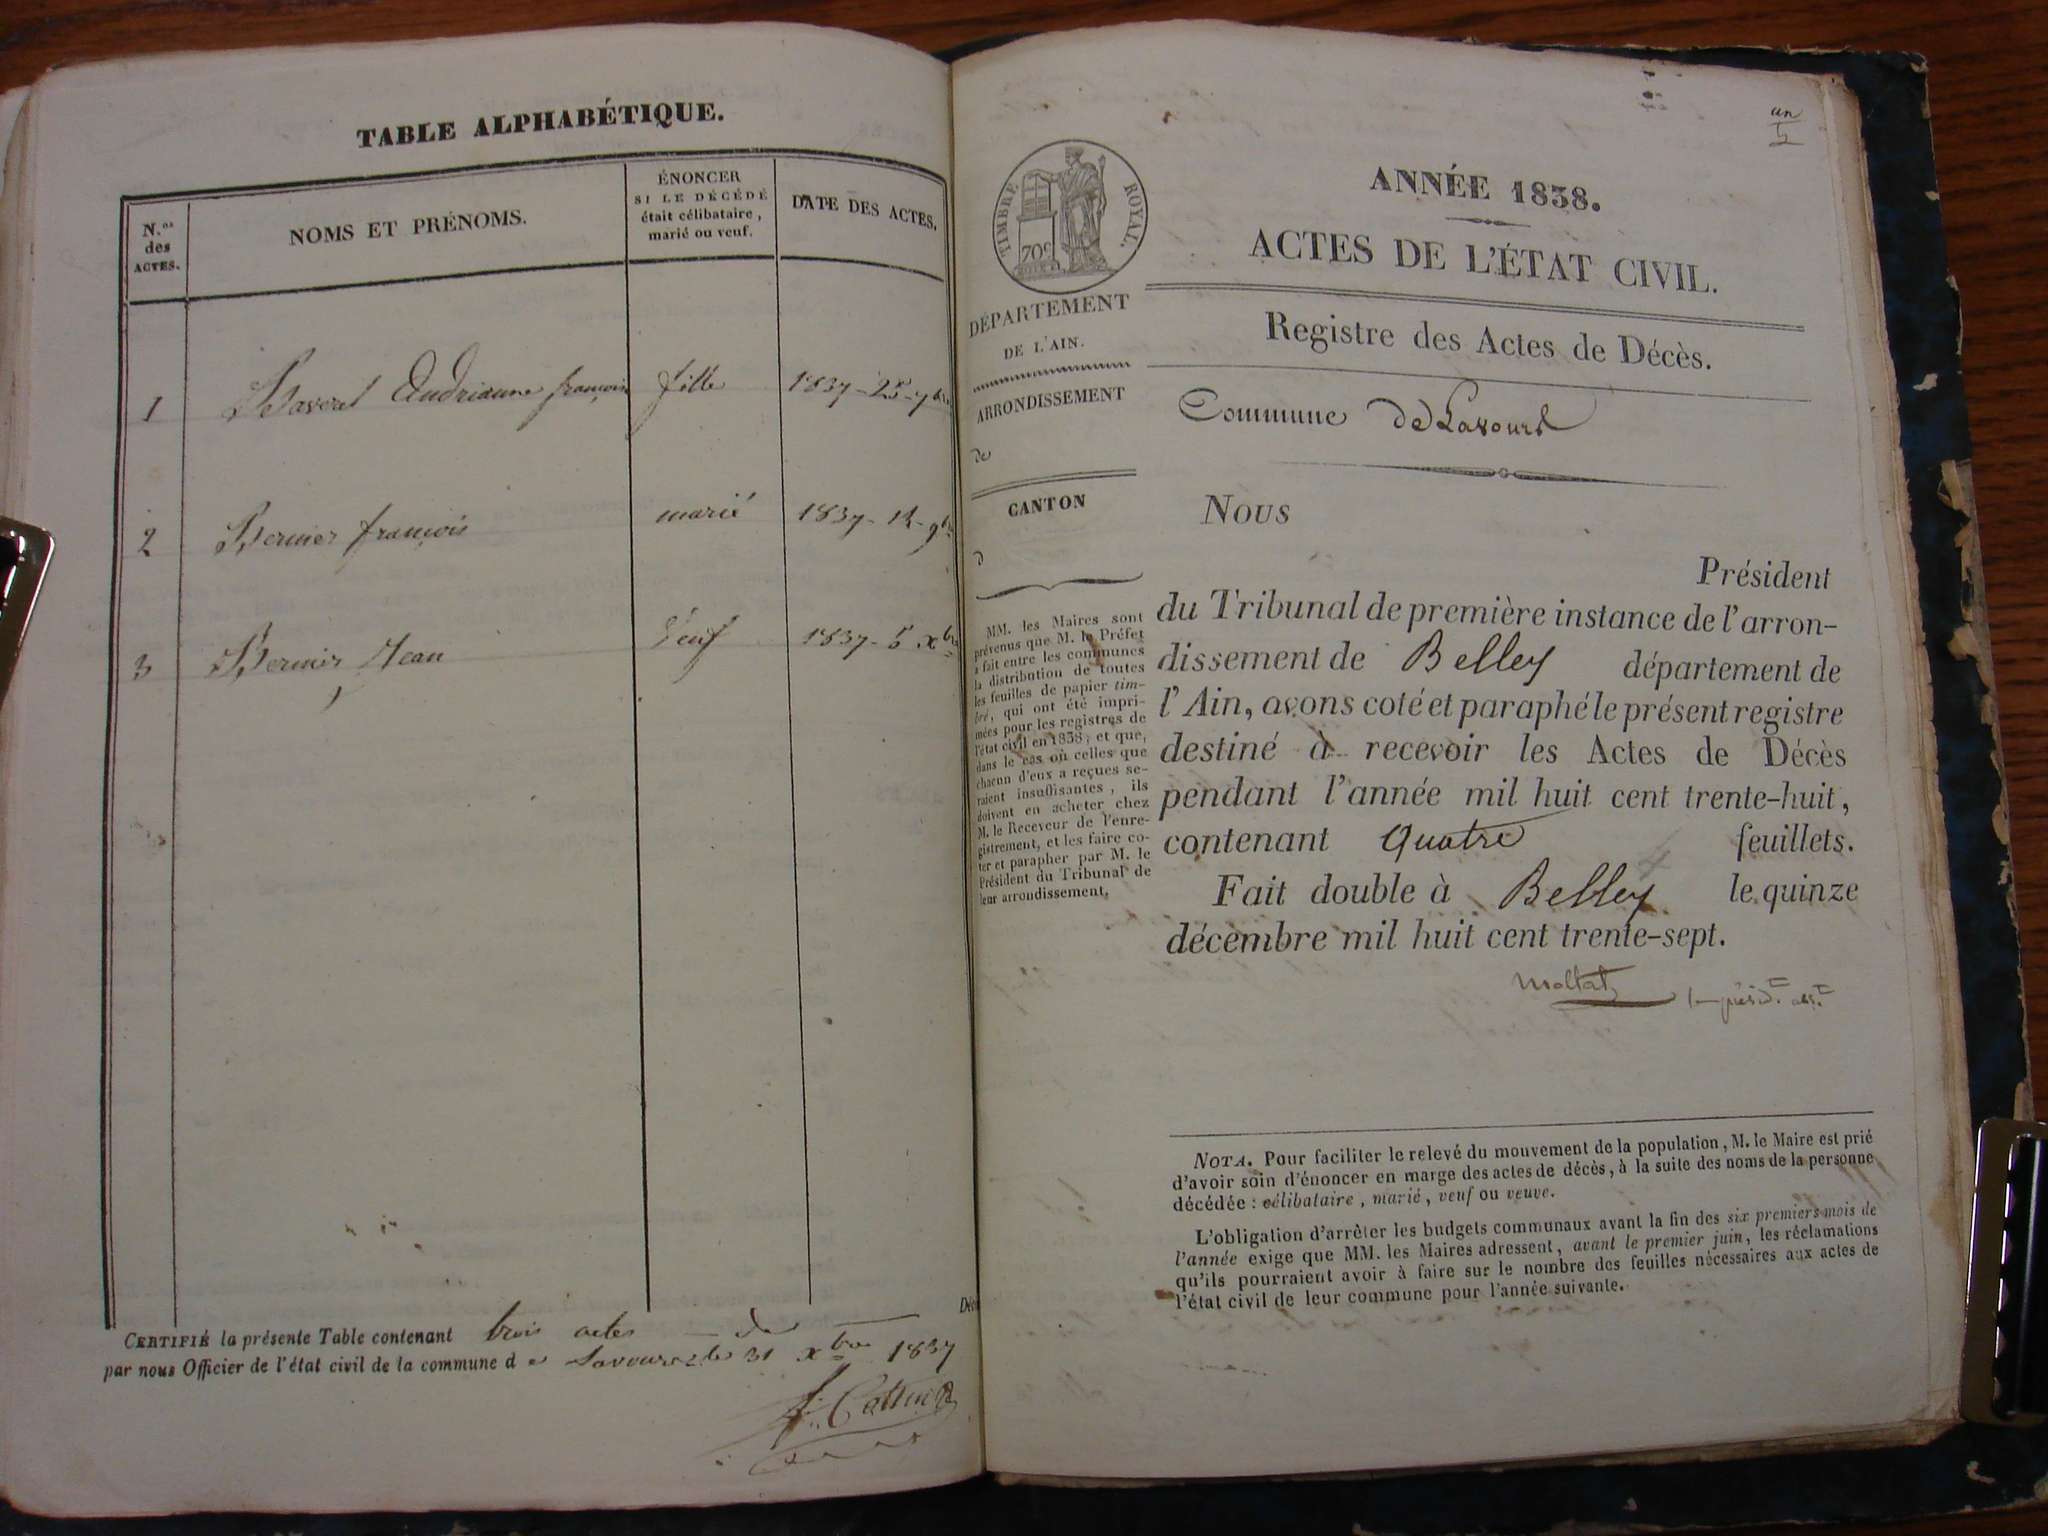 TABLE ALPHABÉTIQUE.
N.os
des
ACTES.
NOMS ET PRÉNOMS.
ÉNONCER
SI LE DÉCÉDÉ
était célibataire,
marié ou veuf.
DATE DES ACTES.
1 françoise fille 1837 - 25 - 7bre
2 Bernier françois marié 1837 - 12 - 9bre
3 Bernier Jean Veuf 1837 - 5 Xbre
CERTIFIÉ la présente Table contenant trois actes de Déc
par nous Officier de l'état civil de la commune de Lavours le 31 Xbre 1837
un
ANNÉE 1838.
ACTES DE L'ÉTAT CIVIL.
Registre des Actes de Décès.
Commune de Lavours
TIMBRE ROYAL.
70c
DÉPARTEMENT
DE L'AIN.
ARRONDISSEMENT
de
CANTON
d
MM. les Maires sont
prévenus que M. le Préfet
a fait entre les communes
la distribution de toutes
les feuilles de papier tim-
bré, qui ont été impri-
mées pour les registres de
l'état civil en 1838, et que,
dans le cas où celles que
chacun d'eux a reçues se-
raient insuffisantes, ils
doivent en acheter chez
M. le Receveur de l'enre-
gistrement, et les faire co-
ter et parapher par M. le
Président du Tribunal de
leur arrondissement.
Nous
Président
du Tribunal de première instance de l'arron-
dissement de Belley département de
l'Ain, avons coté et paraphé le présent registre
destiné à recevoir les Actes de Décès
pendant l'année mil huit cent trente-huit,
contenant quatre feuillets.
Fait double à Belley le quinze
décembre mil huit cent trente-sept.
NOTA. Pour faciliter le relevé du mouvement de la population, M. le Maire est prié
d'avoir soin d'énoncer en marge des actes de décès, à la suite des noms de la personne
décédée : célibataire, marié, veuf ou veuve.
L'obligation d'arrêter les budgets communaux avant la fin des six premiers mois de
l'année exige que MM. les Maires adressent, avant le premier juin, les réclamations
qu'ils pourraient avoir à faire sur le nombre des feuilles nécessaires aux actes de
l'état civil de leur commune pour l'année suivante.